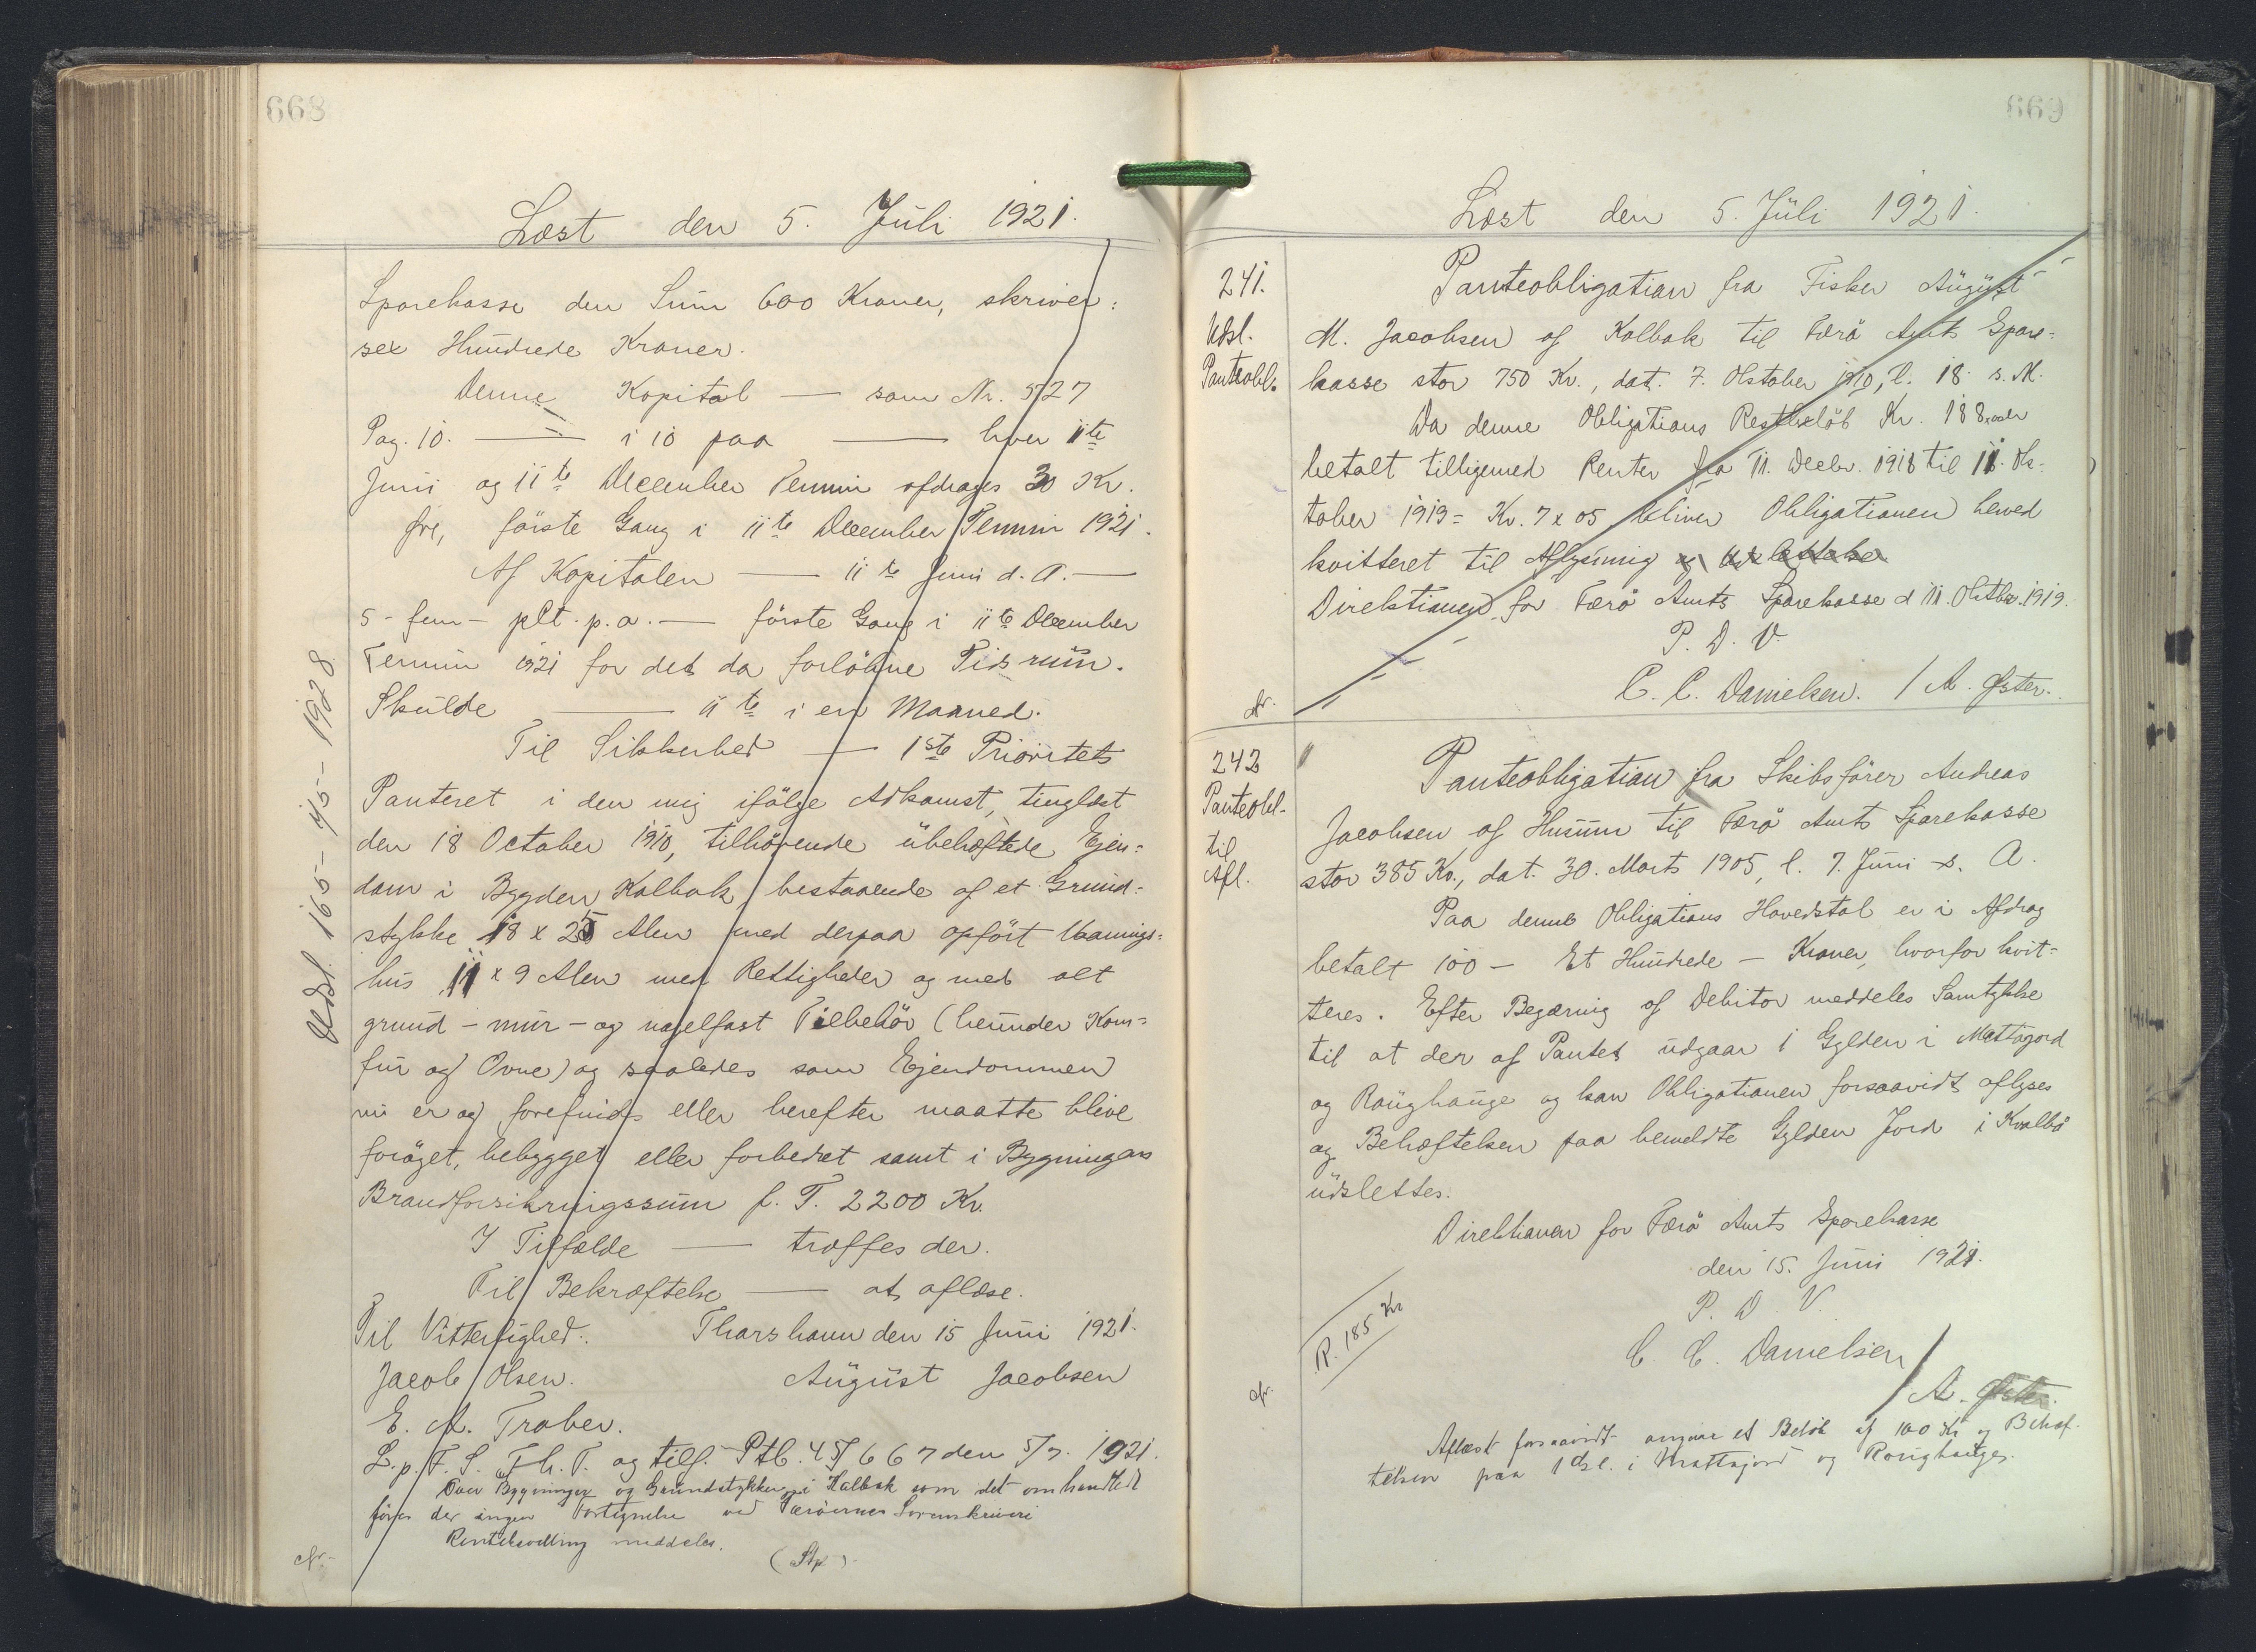 668
Læst den 5. Juli 1921.
Sparekasse den Sum 600 Kroner, skriver:
sex Hundrede Kroner.
Denne Kapital — som Nr. 527
Pag. 10. — i 10 paa — hver 11te
Juni og 11te December Termin afdrages 30 Kr.
fre, første Gang i 11te December Termin 1921.
Af Kapitalen — 11te Juni d. A. —
5 - fem - pCt. p. a. — første Gang i 11te December
Termin 1921 for det da forløbne Tidsrum.
Skulde — 11te i en Maaned.
Til Sikkerhed — 1ste Prioritets
Panteret i den mig ifølge Adkomst, tinglæst
den 18 October 1910, tilhørende übehæftede Ejen=
dom i Bygden Kalbak, bestaaende af et Grund=
stykke 18 x 25 Alen med derpaa opført Vaanings=
hus 11 x 9 Alen med Rettigheder og med alt
grund - mur - og nagelfast Tilbehør (herunder Kom=
fur og Ovne) og saaledes som Ejendommen
nu er og forefindes eller herefter maatte blive
forøget, bebygget eller forbedret samt i Bygningens
Brandforsikringssum f. T. 2200 Kr.
I Tilfælde — træffes der.
Til Bekræftelse — at aflæse.
Til Vitterlighed: Thorshavn den 15 Juni 1921.
Jacob Olsen. August Jacobsen
E. A. Traber.
L. p. F. S. Th. T. og tilf. Ptb. 45/667 den 5/7. 1921.
Over Bygninger og Grundstykker i Kalbak som det omhandlede
føres der ingen Fortegnelse ved Færøernes Sorenskriveri
meddeles.
(Stp.)
Udsl. 165 - 7/5 - 1928.
669
Læst den 5. Juli 1921.
241.
Udsl.
Panteobl.
Panteobligation fra Fisker August
M. Jacobsen af Kalbak til Færø Amts Spare=
kasse stor 750 Kr., dat. 7. Oktober 1910, l. 18. s. M.
Da denne Obligations Restbeløb Kr. 188, er
betalt tilligemed Renter fra 11. Decbr. 1918 til 11. Ok=
tober 1919 = Kr. 7 x 05 bliver Obligationen herved
kvitteret til Aflysning og Udslettelse
Direktionen for Færø Amts Sparekasse d 11. Oktbr. 1919.
P. D. V.
C. C. Danielsen. / A. Øster.
242
Panteobl.
til
Afl.
Panteobligation fra Skibsfører Andreas
Jacobsen af Husum til Færø Amts Sparekasse
stor 385 Kr., dat. 30. Marts 1905, l. 7. Juni s. A.
Paa denne Obligations Hovedstol er i Afdrag
betalt 100 — Et Hundrede — Kroner, hvorfor kvit=
teres. Efter Begæring af Debitor meddeles Samtykke
til at der af Pantet udgaar 1 Gylden i Mattajord
og Raüghauge og kan Obligationen forsaavidt aflyses
og Behæftelsen paa bemeldte Gylden Jord i Kvalbø
udslettes.
Direktionen for Færø Amts Sparekasse
den 15. Juni 1921.
P. D. V.
C. C. Danielsen
/ A. Øster.
R. 185 Kr
Aflæst forsaavidt angaar et Beløb af 100 Kr og Behæf-
telsen paa 1 Gl. i Mattajord og Raughauge.